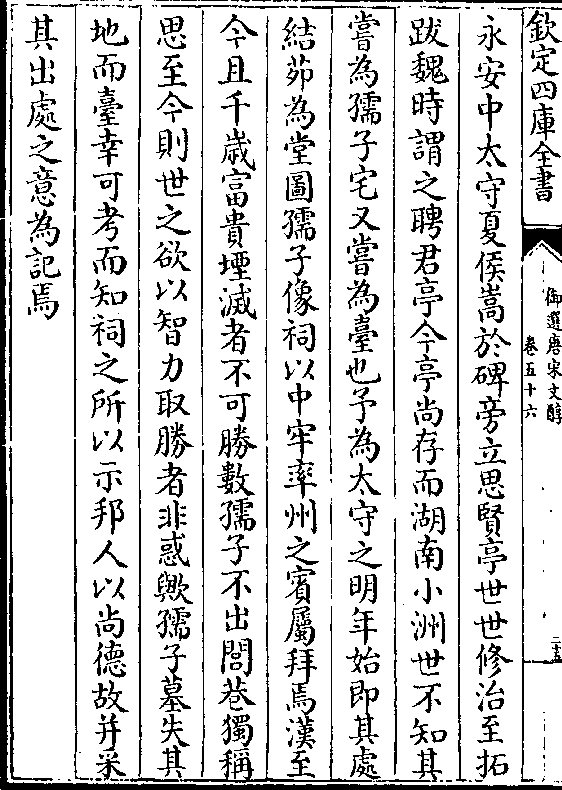 欽定四庫全書
御選唐宋文醇
卷五十六
二十五
永安中太守夏侯嵩於碑旁立思賢亭世世修治至拓
跋魏時謂之聘君亭今亭尚存而湖南小洲世不知其
嘗為孺子宅又嘗為臺也予為太守之明年始即其處
結茆為堂圖孺子像祠以中牢率州之賓屬拜焉漢至
今且千歲富貴堙滅者不可勝數孺子不出閭巷獨稱
思至今則世之欲以智力取勝者非惑歟孺子墓失其
地而臺幸可考而知祠之所以示邦人以尚德故并采
其出處之意為記焉